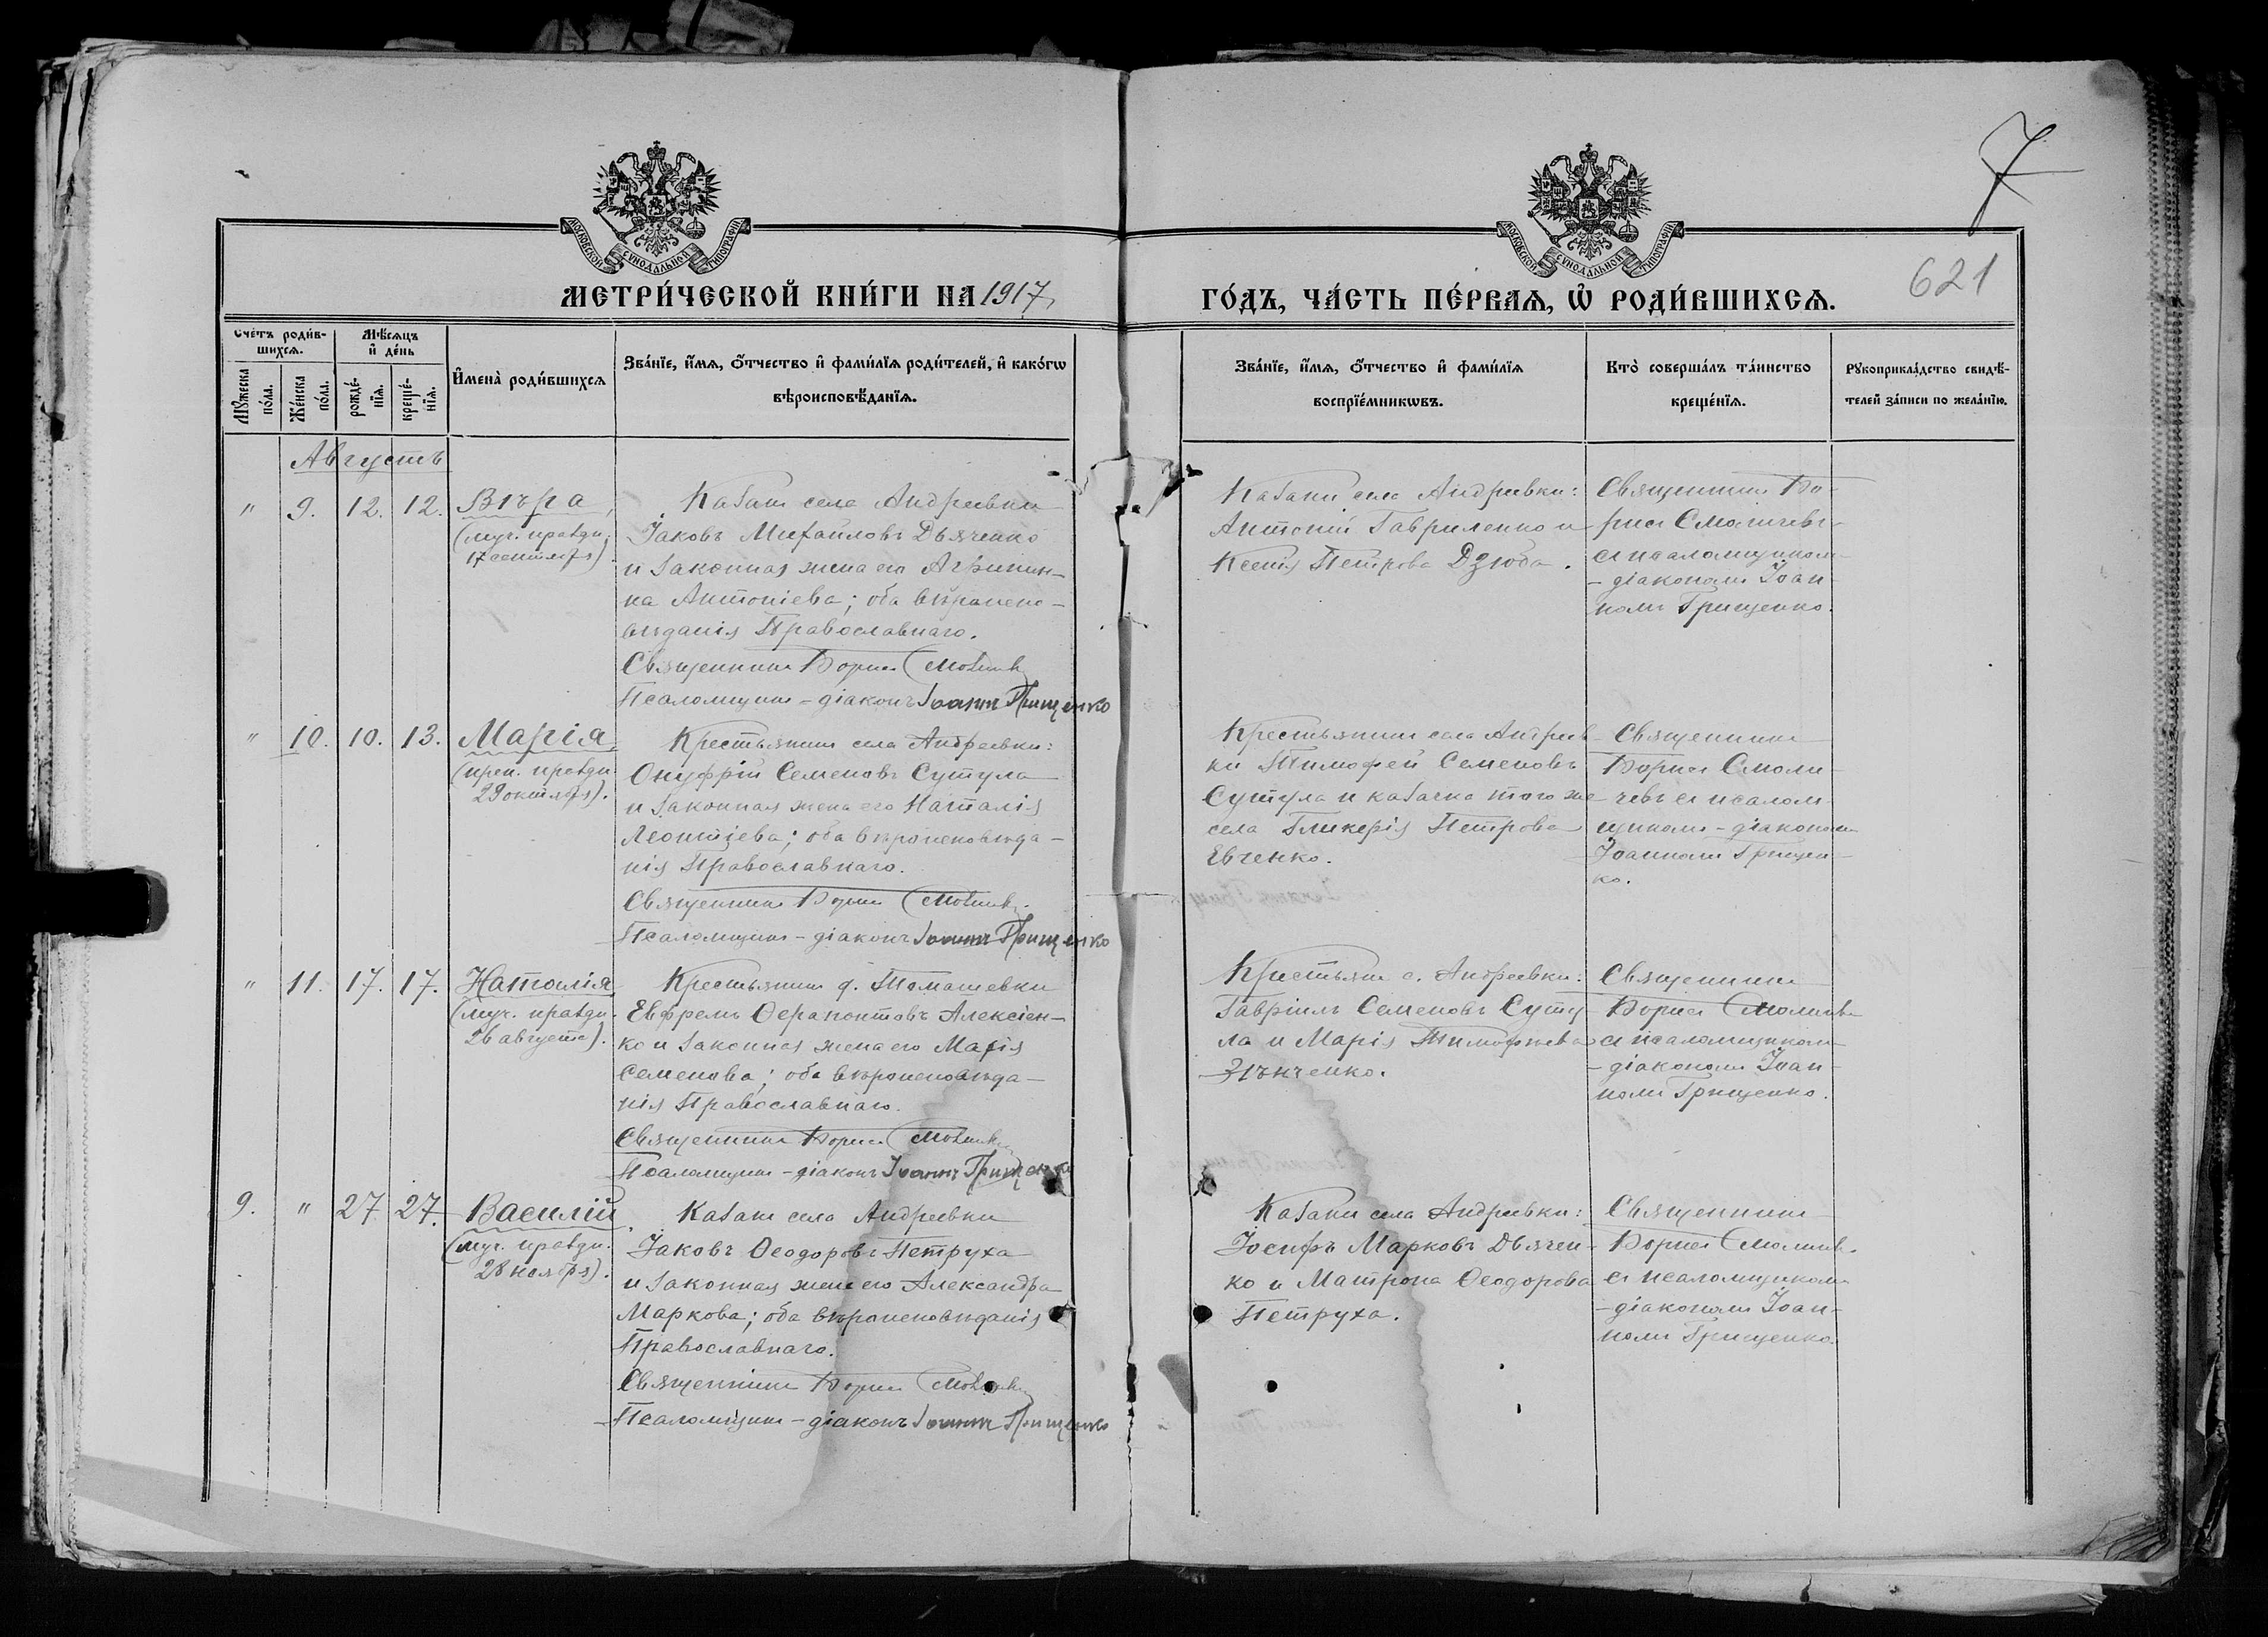 7
МОСКОВСКОЙ СѴНОДАЛЬНОЙ ТИПОГРАФІИ
МОСКОВСКОЙ СѴНОДАЛЬНОЙ ТИПОГРАФІИ
621
МЕТРИ́ЧЕСКОЙ КНИ́ГИ НА 1917
ГО́ДЪ, ЧА́СТЬ ПЕ́РВАЯ, Ѡ҆ РОДИ́ВШИХСЯ.
Сче́тъ роди́в-
шихся.
Мѣ́сяцъ
и҆ де́нь
Мꙋ́жеска
по́ла.
Же́нска
по́ла.
рожде́-
нїя.
креще́-
нїя.
И҆мена̀ роди́вшихся
Зва́нїе, и҆́мя, ѻ҆́тчество и҆ фами́лїя роди́телей, и҆ како́гѡ
вѣроисповѣ́данїя.
Зва́нїе, и҆́мя, ѻ҆́тчество и҆ фами́лїя
воспрїе́мникѡвъ.
Кто̀ соверша́лъ та́инство
креще́нїя.
Рꙋкоприкла́дство свидѣ́-
телей за́писи по жела́нїю.
Августъ
" 9. 12. 12. Вѣра
(муч. праздн.
17 сентября)
Казакъ села Андреевки
Іаковъ Михайловъ Дьяченко
и законная жена его Агрипин-
на Антоніева; оба вѣроиспо-
вѣданія Православнаго.
Священникъ Борисъ Смоличевъ
Псаломщикъ-діаконъ Іоаннъ Грищенко
Казаки села Андреевки:
Антоній Гавриленко и
Ксенія Петрова Дзюба.
Священникъ Бо-
рисъ Смоличевъ
съ псаломщикомъ
-діакономъ Іоан-
номъ Грищенко.
" 10. 10. 13. Марія
(преп. праздн.
29 октября).
Крестьянинъ села Андреевки:
Онуфрій Семеновъ Сутула
и законная жена его Наталія
Леонтіева; оба вѣроисповѣда-
нія Православнаго.
Священникъ Борисъ Смоличевъ
Псаломщикъ-діаконъ Іоаннъ Грищенко
Крестьянинъ села Андреев-
ки Тимофей Семеновъ
Сутула и казачка того же
села Гликерія Петрова
Евченко.
Священникъ
Борисъ Смоли-
чевъ съ псалом-
щикомъ-діакономъ
Іоанномъ Грищен-
ко.
" 11. 17. 17. Наталія
(муч. праздн.
26 августа).
Крестьянинъ д. Томашевки
Евфремъ Ѳерапонтовъ Алексіен-
ко и законная жена его Марія
Семенова; оба вѣроисповѣда-
нія Православнаго.
Священникъ Борисъ Смоличевъ
Псаломщикъ-діаконъ Іоаннъ Грищенко
Крестьяне с. Андреевки:
Гавріилъ Семеновъ Суту-
ла и Марія Тимофѣева
Зѣнченко.
Священникъ
Борисъ Смоличевъ
съ псаломщикомъ
-діакономъ Іоан-
номъ Грищенко.
9. " 27. 27. Василій
(муч. праздн.
28 ноября).
Казакъ села Андреевки
Іаковъ Ѳеодоровъ Петруха
и законная жена его Александра
Маркова; оба вѣроисповѣданія
Православнаго.
Священникъ Борисъ Смоличевъ
Псаломщикъ-діаконъ Іоаннъ Грищенко
Казаки села Андреевки:
Іосифъ Марковъ Дьячен-
ко и Матрона Ѳеодорова
Петруха.
Священникъ
Борисъ Смоличевъ
съ псаломщикомъ
-діакономъ Іоан-
номъ Грищенко.